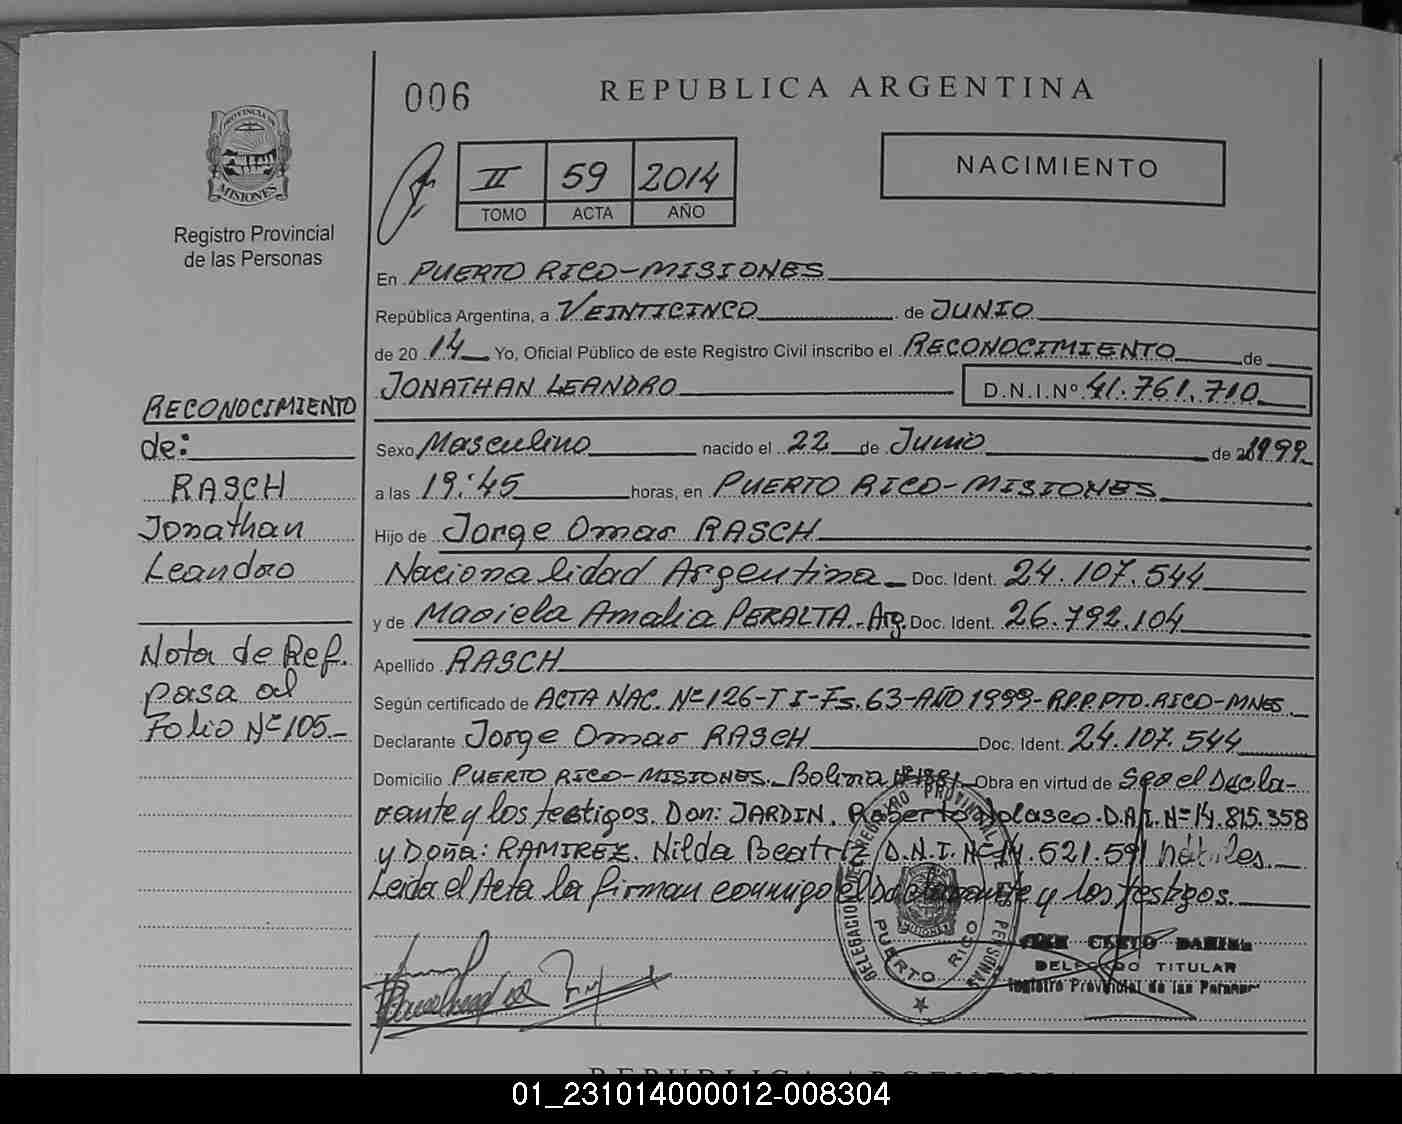 006
REPUBLICA ARGENTINA
PROVINCIA DE
MISIONES
Registro Provincial
de las Personas
II 59 2014
TOMO ACTA AÑO
NACIMIENTO
En PUERTO RICO-MISIONES
República Argentina, a VEINTICINCO de JUNIO
de 20 14 Yo, Oficial Público de este Registro Civil inscribo el RECONOCIMIENTO de
JONATHAN LEANDRO D.N.I.Nº 41.761.710
Sexo Masculino nacido el 22 de Junio de 1999
a las 19:45 horas, en PUERTO RICO-MISIONES
Hijo de Jorge Omar RASCH
Nacionalidad Argentina Doc. Ident. 24.107.544
y de Mariela Amalia PERALTA.-Arg. Doc. Ident. 26.792.104
Apellido RASCH
Según certificado de ACTA NAC. Nº126-T I-Fs. 63-AÑO 1999-R.P.P.PTO.RICO-MNES.
Declarante Jorge Omar RASCH Doc. Ident. 24.107.544
Domicilio PUERTO RICO-MISIONES. Bolivia Obra en virtud de Ser el Decla-
rante y los testigos. Don: JARDIN. Roberto Nolasco-D.N.I. Nº14.815.358
y Doña: RAMIREZ. Nilda Beatriz D.N.I. Nº14.521.591 hábiles.
Leída el Acta la firman conmigo el Declarante y los testigos.
RECONOCIMIENTO
de:
RASCH
Jonathan
Leandro
Nota de Ref.
pasa al
Folio Nº105
DELEGACION DEL REGISTRO PROVINCIAL DE LAS PERSONAS
PUERTO RICO
DELEGADO TITULAR
Registro Provincial de las Personas
REPUBLICA ARGENTINA
01_231014000012-008304